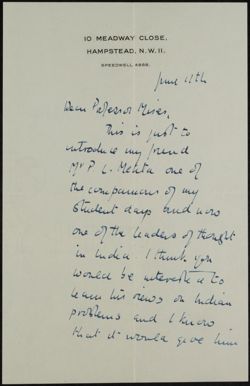 10 MEADWAY CLOSE,
HAMPSTEAD, N.W.11.
SPEEDWELL 4688.
June 11th
Dear Professor Mises,
This is just to
introduce my friend
Mr P. L. Mehta one of
the companions of my
student days and now
one of the leaders of thought
in India. I think you
would be interested to
learn his views on Indian
problems and I know
that it would give him